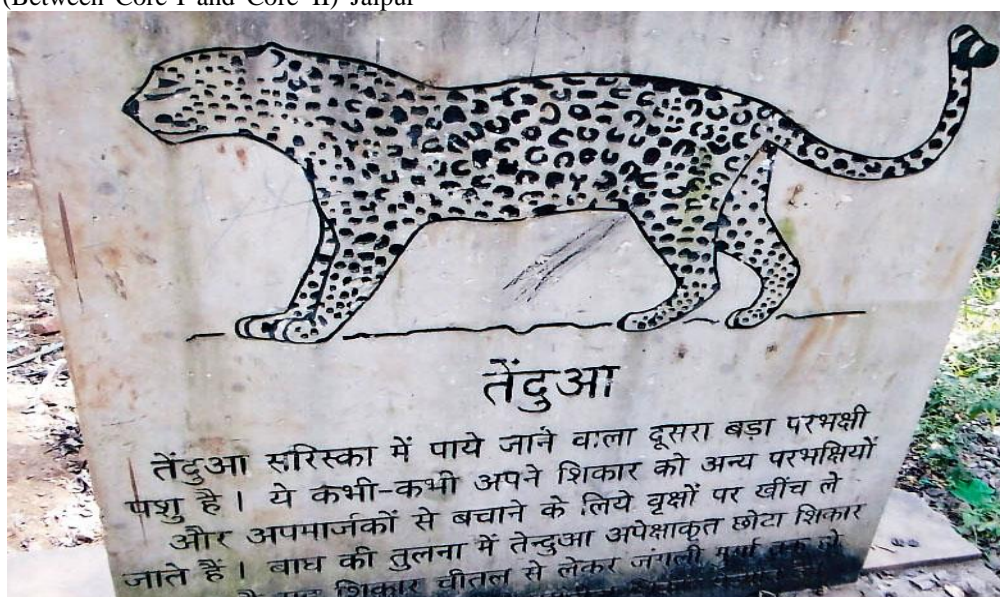 (Between Core I and Core II) Jaipur
तेंदुआ
तेंदुआ सरिस्का में पाये जाने वाला दूसरा बड़ा परभक्षी
पशु है । ये कभी-कभी अपने शिकार को अन्य परभक्षियों
और अपमार्जकों से बचाने के लिये वृक्षों पर खींच ले
जाते हैं । बाघ की तुलना में तेन्दुआ अपेक्षाकृत छोटा शिकार
शिकार चीतल से लेकर जंगली मुर्गा तक